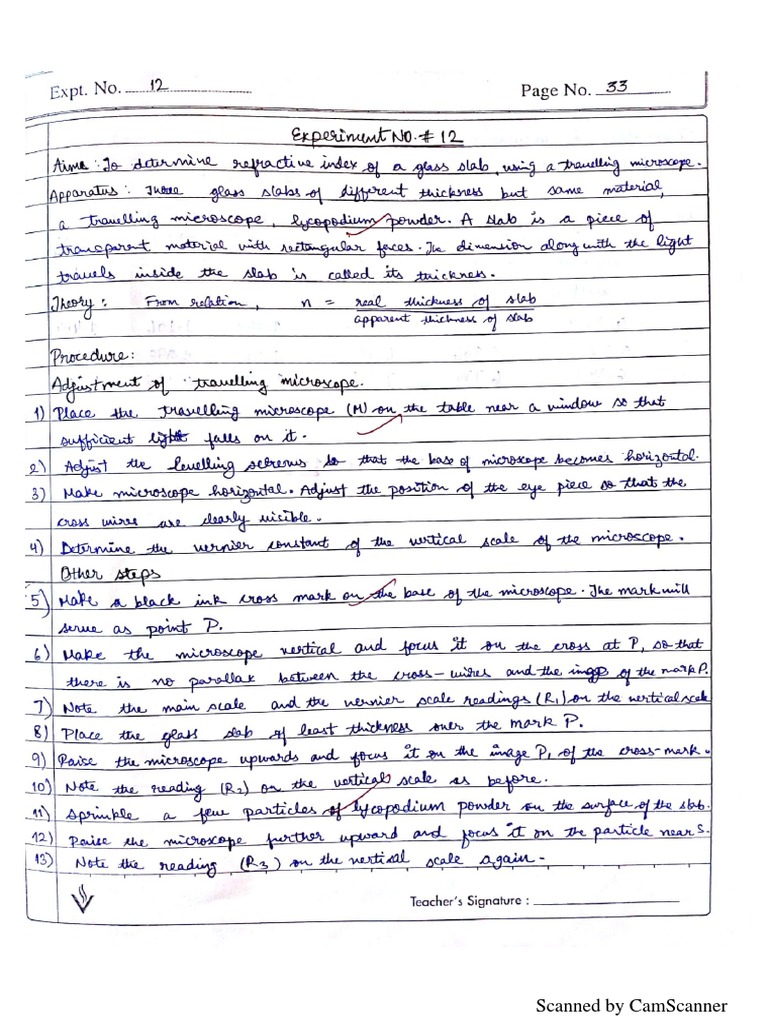 Expt. No. 12
Page No. 33
Experiment No. # 12
Aim : To determine refractive index of a glass slab, using a travelling microscope.
Apparatus : Three glass slabs of different thickness but same material,
a travelling microscope, lycopodium powder. A slab is a piece of
transparent material with rectangular faces. The dimension along with the light
travels inside the slab is called its thickness.
Theory : From relation, n = real thickness of slab
apparent thickness of slab
Procedure:
Adjustment of travelling microscope.
1) Place the travelling microscope (M) on the table near a window so that
sufficient light falls on it.
2) Adjust the levelling screws so that the base of microscope becomes horizontal.
3) Make microscope horizontal. Adjust the position of the eye piece so that the
cross wires are clearly visible.
4) Determine the vernier constant of the vertical scale of the microscope.
Other steps
5) Make a black ink cross mark on the base of the microscope. The mark will
serve as point P.
6) Make the microscope vertical and focus it on the cross at P, so that
there is no parallax between the cross-wires and the image of the mark P.
7) Note the main scale and the vernier scale readings (R1) on the vertical scale
8) Place the glass slab of least thickness over the mark P.
9) Raise the microscope upwards and focus it on the image P1 of the cross-mark.
10) Note the reading (R2) on the vertical scale as before.
11) Sprinkle a few particles of lycopodium powder on the surface of the slab.
12) Raise the microscope further upward and focus it on the particle near S.
13) Note the reading (R3) on the vertical scale again.
Teacher's Signature :
Scanned by CamScanner